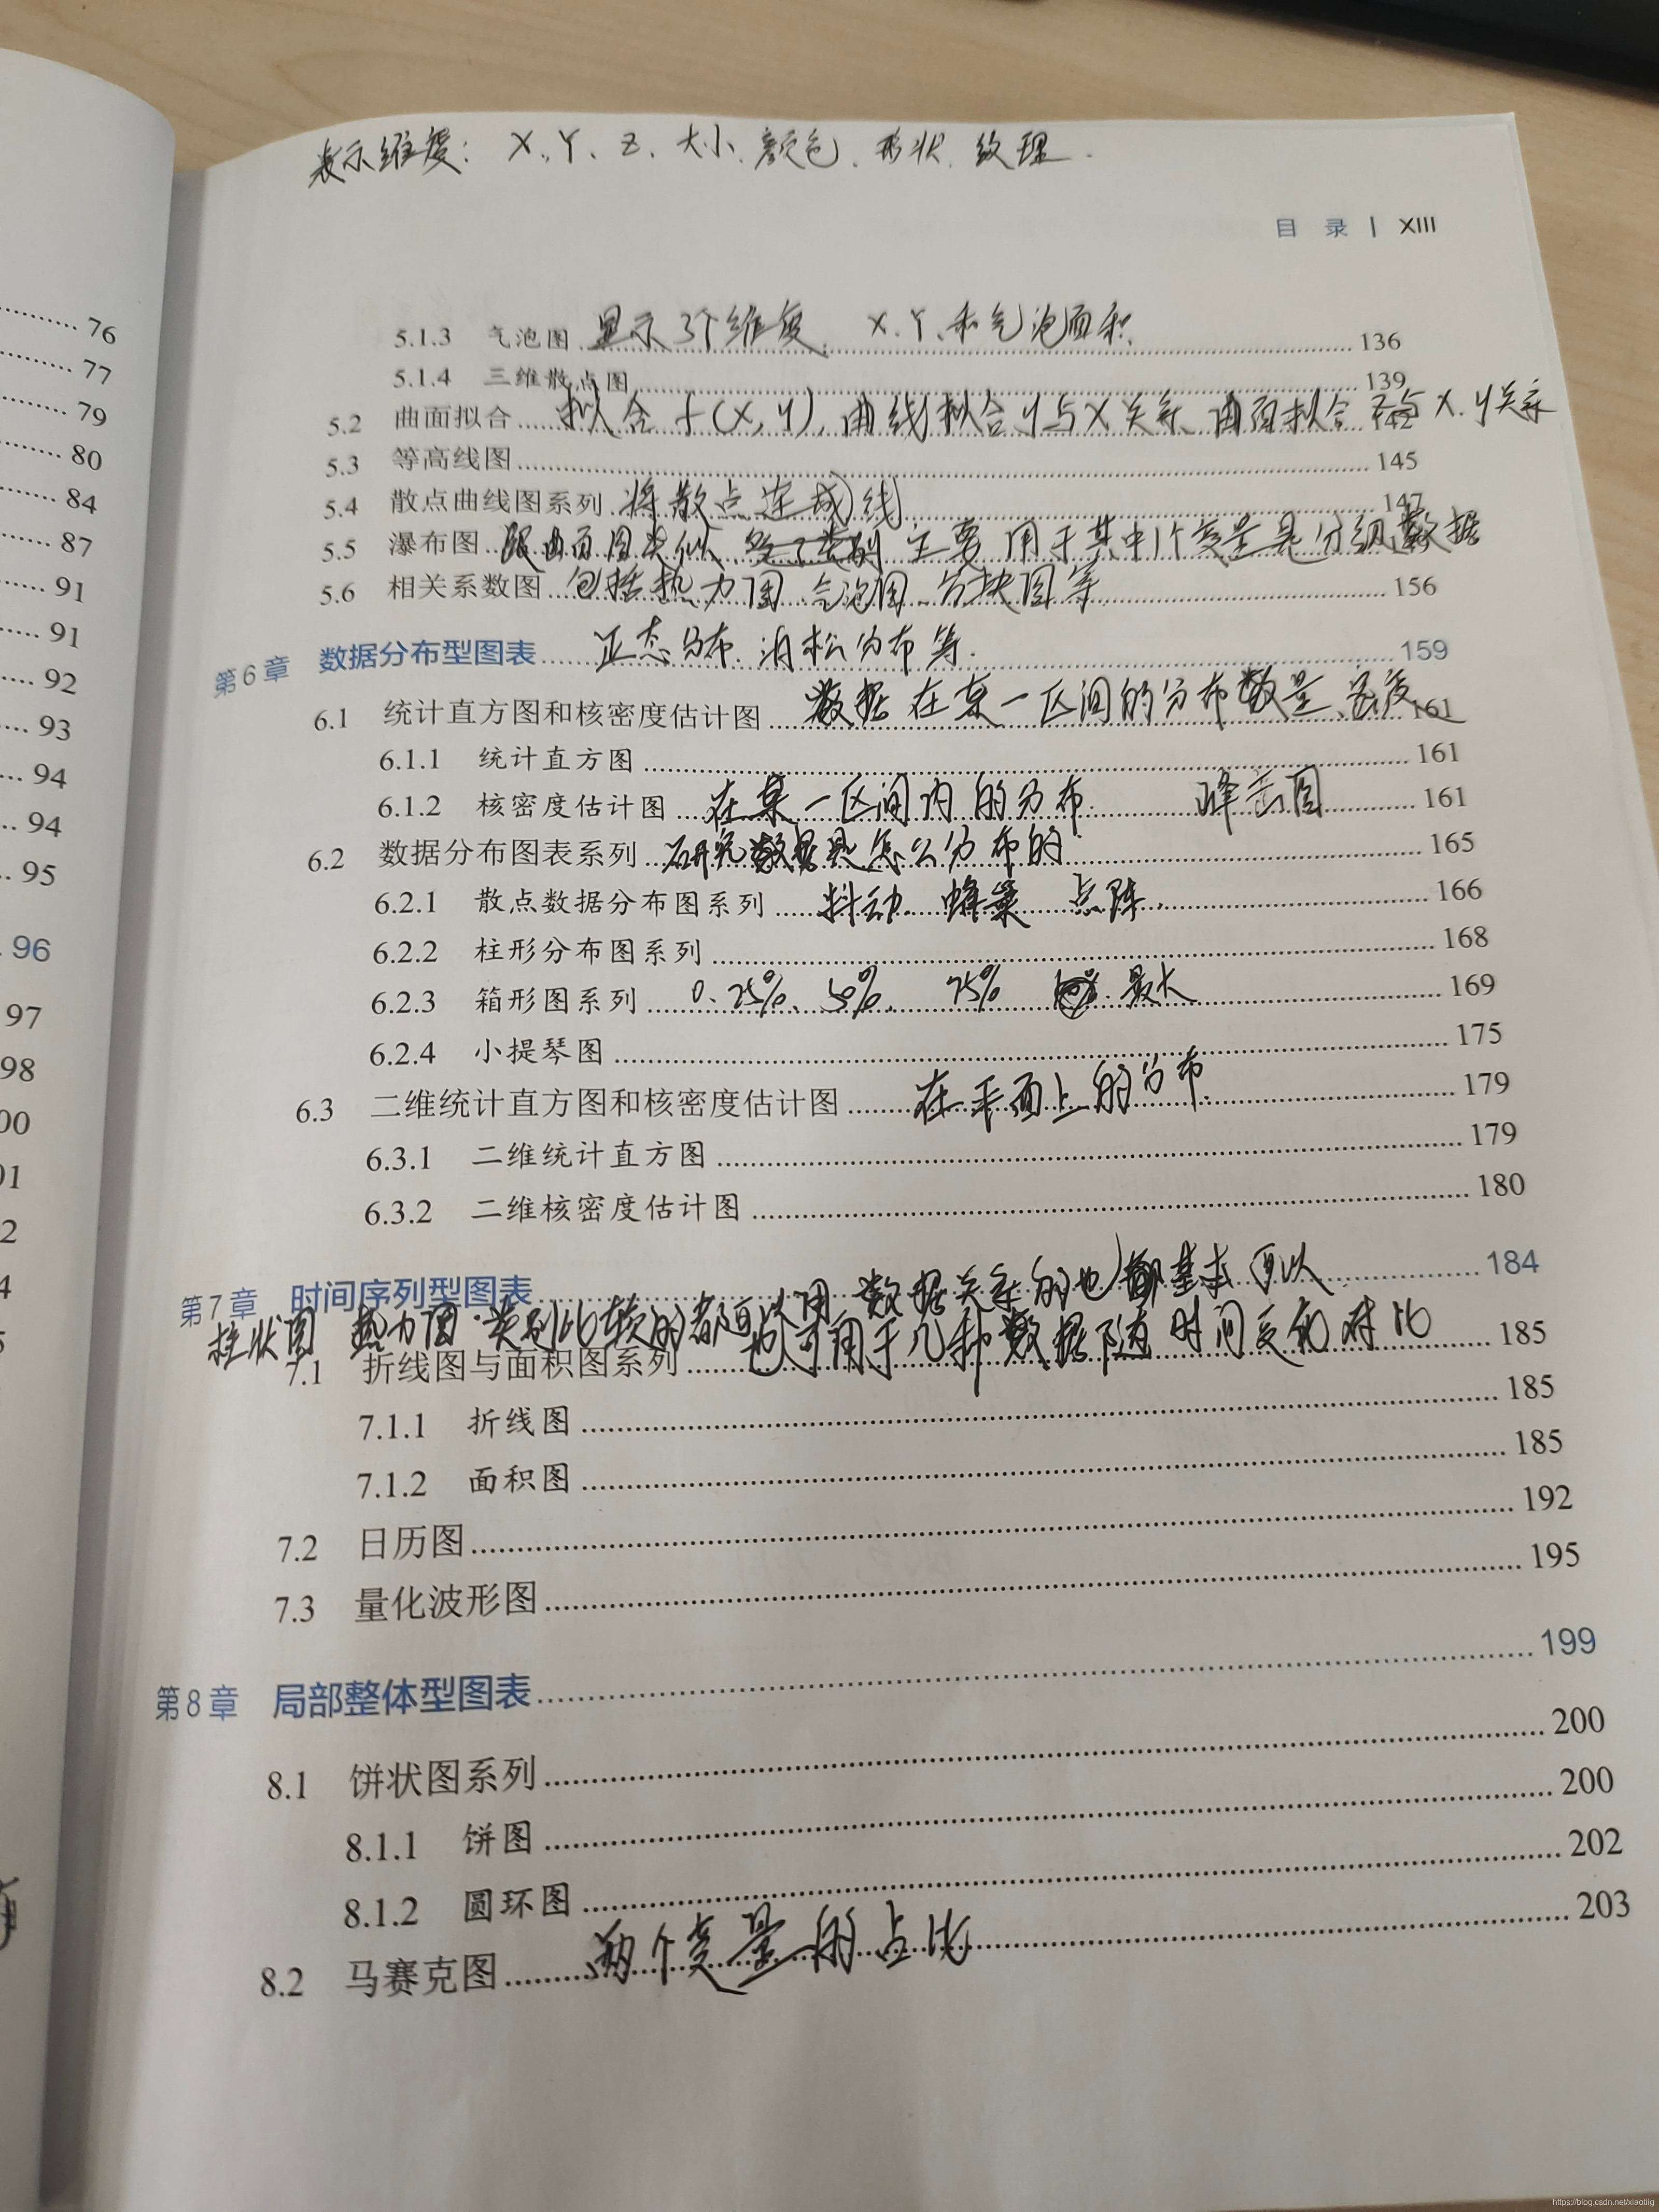 表示维度：X、Y、Z、大小、颜色、形状、纹理.
目 录 | XIII
5.1.3 气泡图 显示3个维度 X、Y、和气泡面积 136
5.1.4 三维散点图 139
5.2 曲面拟合 拟合f(X,Y)，曲线拟合Y与X关系 曲面拟合 X.Y关系 142
5.3 等高线图 145
5.4 散点曲线图系列 将散点连成线 147
5.5 瀑布图 跟曲面图类似、 主要用于其中1个变量是分组数据
5.6 相关系数图 包括热力图、气泡图、方块图等 156
第6章 数据分布型图表 正态分布、泊松分布等. 159
6.1 统计直方图和核密度估计图 数据在某一区间的分布数量、密度 161
6.1.1 统计直方图 161
6.1.2 核密度估计图 在某一区间内的分布. 峰峦图 161
6.2 数据分布图表系列 研究数据是怎么分布的 165
6.2.1 散点数据分布图系列 抖动、蜂巢 点阵. 166
6.2.2 柱形分布图系列 168
6.2.3 箱形图系列 0、25%、50%、75% 最大 169
6.2.4 小提琴图 175
6.3 二维统计直方图和核密度估计图 在平面上的分布. 179
6.3.1 二维统计直方图 179
6.3.2 二维核密度估计图 180
第7章 时间序列型图表 数据关系的也都基本可以 184
柱状图 热力图、类别比较的都可以用
7.1 折线图与面积图系列 也可用于几种数据随时间变化对比 185
7.1.1 折线图 185
7.1.2 面积图 185
7.2 日历图 192
7.3 量化波形图 195
第8章 局部整体型图表 199
8.1 饼状图系列 200
8.1.1 饼图 200
8.1.2 圆环图 202
8.2 马赛克图 两个变量的占比 203
76
77
79
80
84
87
91
91
92
93
94
94
95
96
97
98
https://blog.csdn.net/xiaotiig